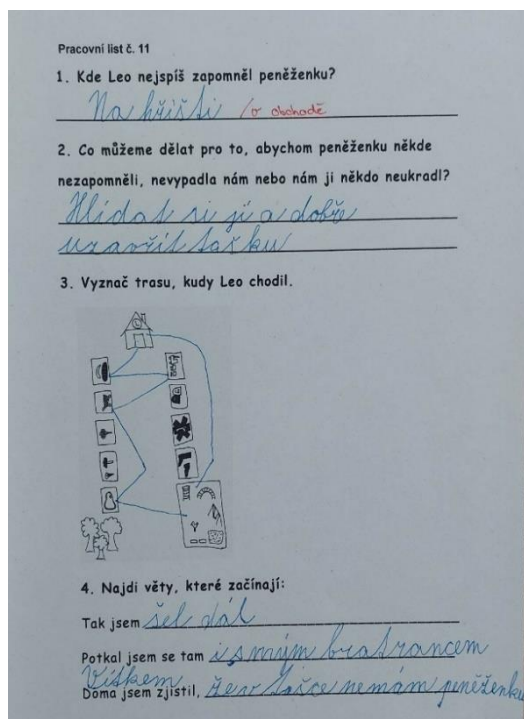 Pracovní list č. 11
1. Kde Leo nejspíš zapomněl peněženku?
Na hřišti /v obchodě
2. Co můžeme dělat pro to, abychom peněženku někde
nezapomněli, nevypadla nám nebo nám ji někdo neukradl?
Hlídat si ji a dobře
uzavřít tašku
3. Vyznač trasu, kudy Leo chodil.
4. Najdi věty, které začínají:
Tak jsem šel dál
Potkal jsem se tam i s mým bratrancem
Vítkem
Doma jsem zjistil, že v tašce nemám peněženku